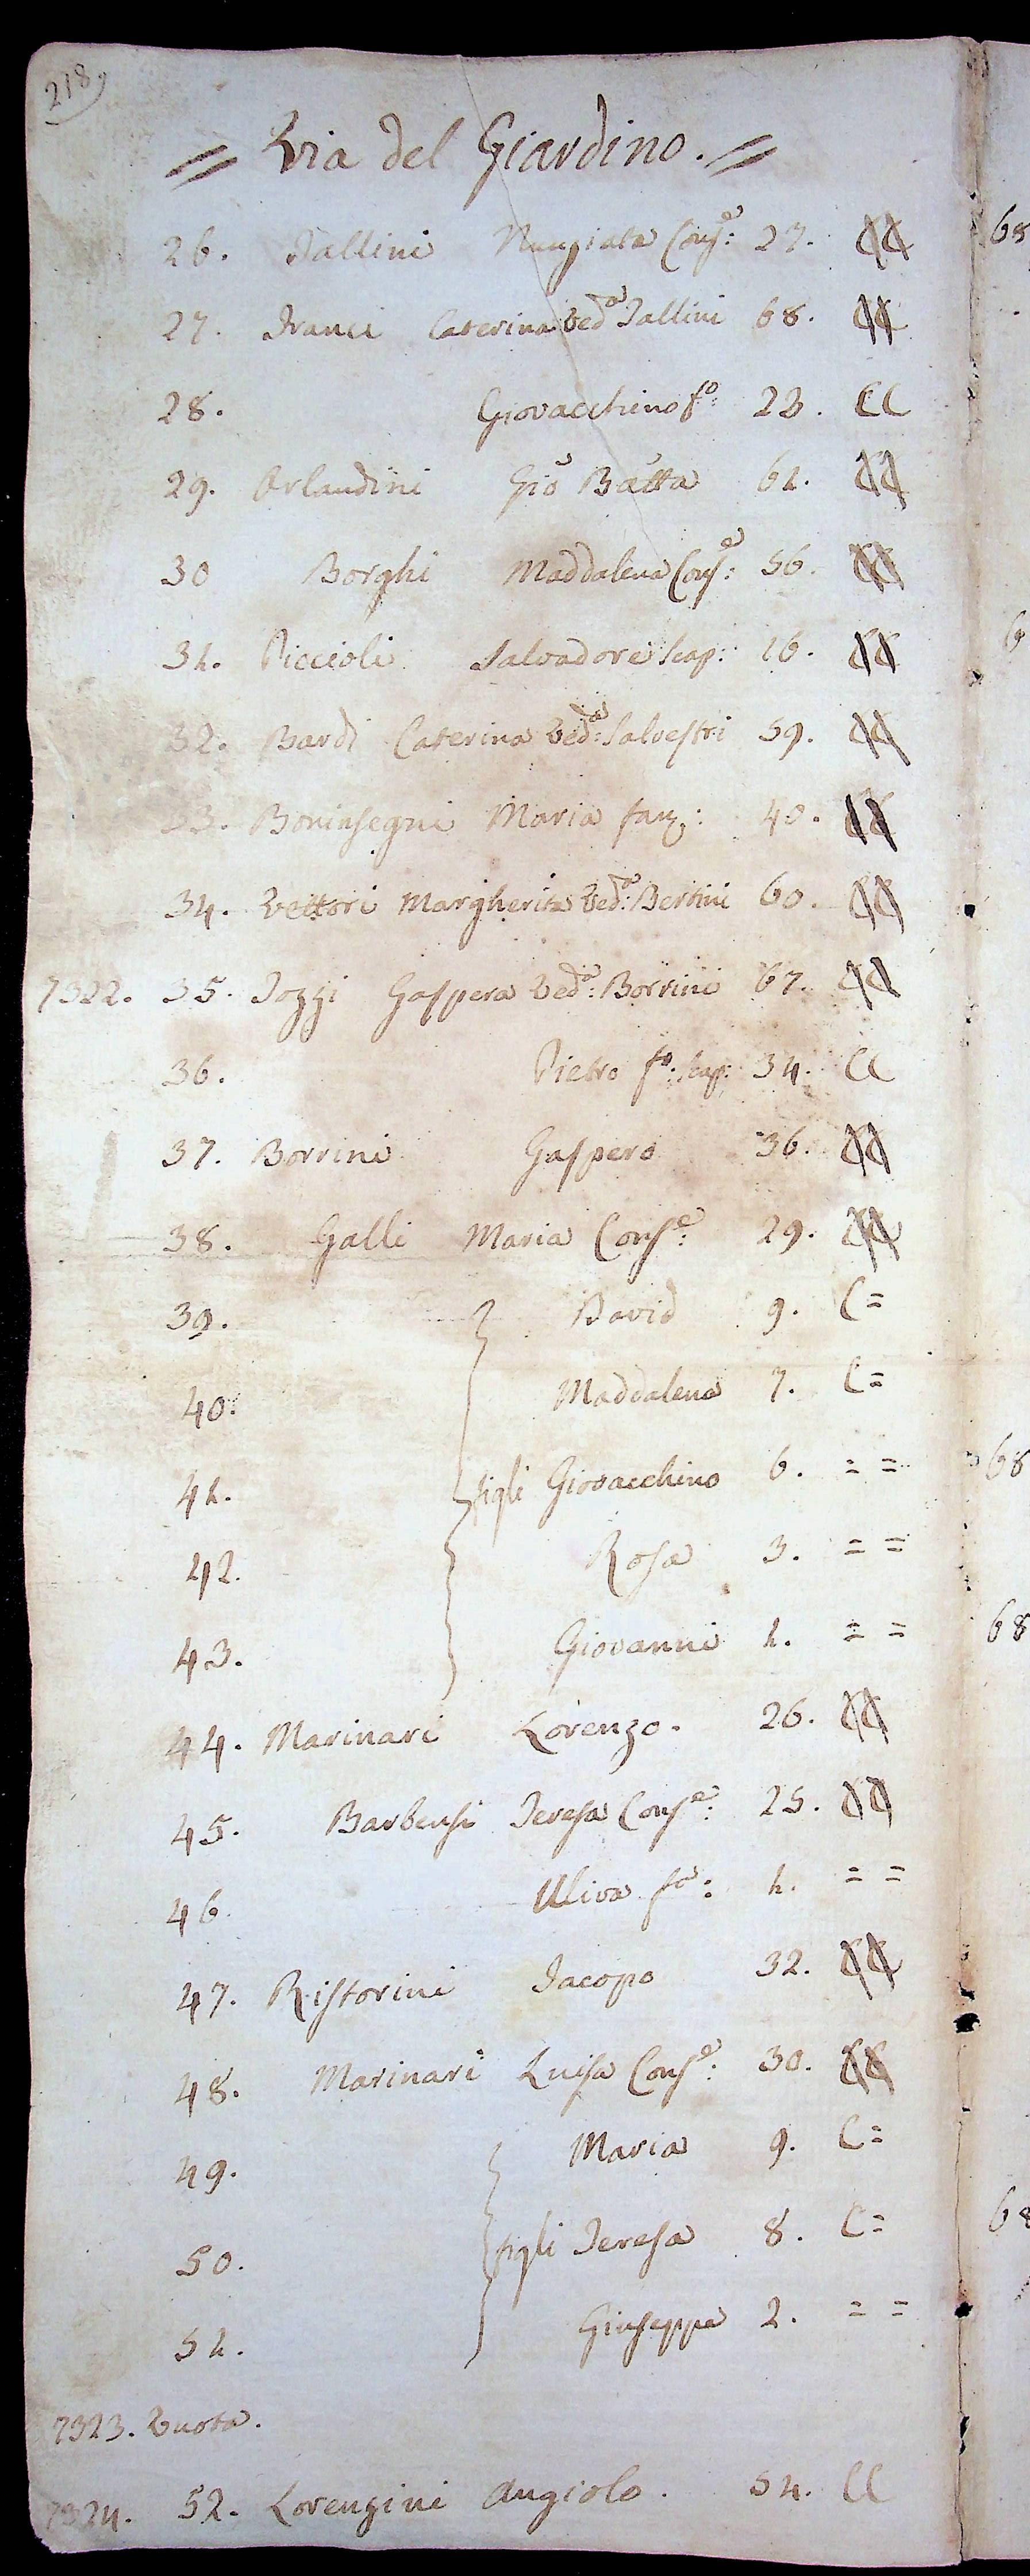 218
= Via del Giardino. =
26. Tallini Nunziata Cons.e: 27. CC
27. Franci Caterina Ved.a Tallini 68. CC
28. Giovacchino f.o: 23. CC
29. Orlandini Gio Batta 61. CC
30 Borghi Maddalena Cons.e: 56. CC
31. Piccioli Salvadore scap: 16. CC
32. Bardi Caterina Ved.a: Salvestri 59. CC
33. Boninsegni Maria fan: 40. CC
34. Vettori Margherita Ved.a: Bertini 60. CC
7322. 35. Tozzi Gaspera Ved.a: Borrini 67. CC
36. Pietro f.o: scap: 34. CC
37. Borrini Gaspero 36. CC
38. Galli Maria Cons.e: 29. CC
39. David 9. C=
40. Maddalena 7. C=
41. figli Giovacchino 6. = =
42. Rosa 3. = =
43. Giovanni 1. = =
44. Marinari Lorenzo. 26. CC
45. Barbensi Teresa Cons.e: 25. CC
46. Uliva f.a: 1. = =
47. Ristorini Jacopo 32. CC
48. Marinari Luisa Cons.e: 30. CC
49. Maria 9. C=
50. figli Teresa 8. C=
51. Giuseppe 2. = =
7323. Vuota.
7324. 52. Lorenzini Angiolo. 51. CC